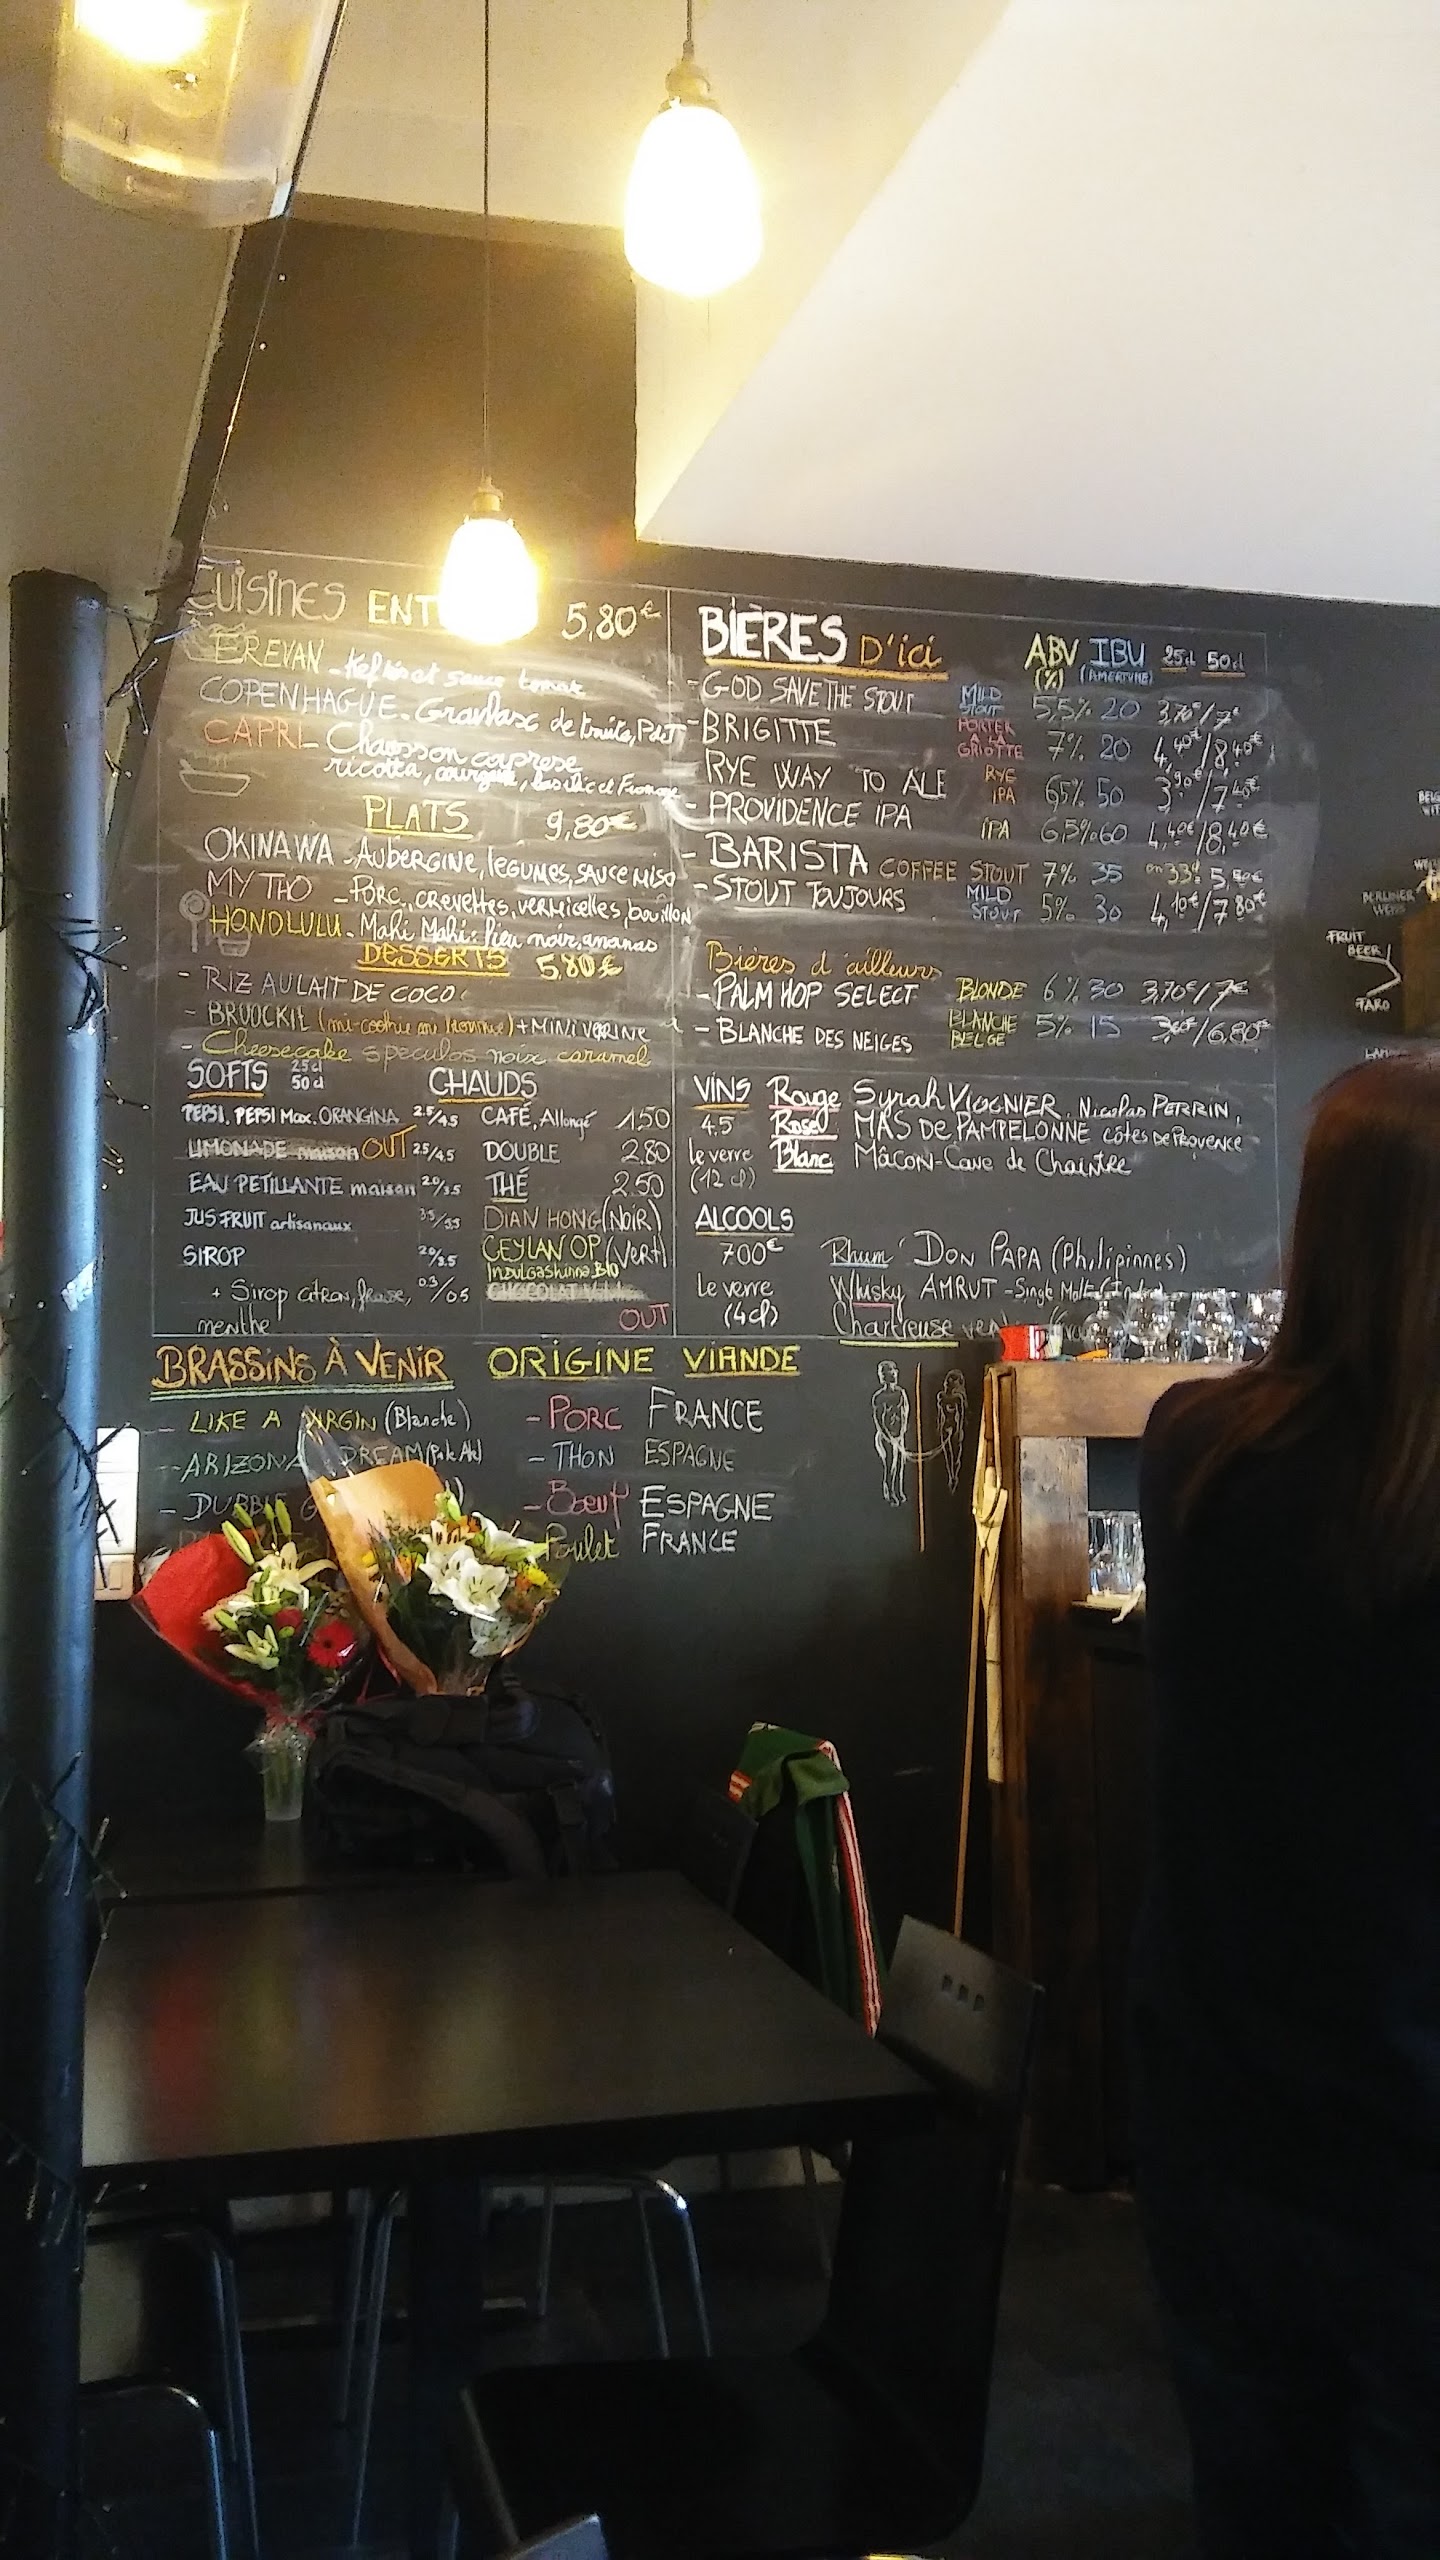 CUISINES ENT 5,80€
EREVAN - Keftis et sauce tomate
COPENHAGUE - Gravlasc de truite, PdeT
CAPRI - Chausson caprese
ricotta, courgette, basilic et Fromage
PLATS 9,80€
OKINAWA - AUBERGINE, LÉGUMES, SAUCE MISO
MY THO - PORC, crevettes, vermicelles, bouillon
HONOLULU - Mahi Mahi: lieu noir, ananas
DESSERTS 5,80€
- RIZ AU LAIT DE COCO
- BROOCKIE (mi-cookie mi brownie) + MINI VERINE
- Cheesecake speculos noix caramel
SOFTS 25cl 50cl
PEPSI, PEPSI Max, ORANGINA 2.5/4.5
LIMONADE maison OUT 2.5/4.5
EAU PETILLANTE maison 2.0/3.5
JUS FRUIT artisanaux 3.5/5.5
SIROP 2.0/3.5
+ Sirop citron, fraise, 0.3/0.5
menthe
CHAUDS
CAFÉ, Allongé 1.50
DOUBLE 2.80
THÉ 2.50
DIAN HONG (NOIR)
CEYLAN OP (Vert)
CHOCOLAT
OUT
BIÈRES D'ici ABV (%) IBU (AMERTUME) 25cl 50cl
- GOD SAVE THE STOUT MILD STOUT 5,5% 20 3,70€/7€
- BRIGITTE PORTER A LA GRIOTTE 7% 20 4,40€/8,40€
RYE WAY TO ALE RYE IPA 6,5% 50 3,90€/7,40€
- PROVIDENCE IPA IPA 6,5% 60 4,40€/8,40€
- BARISTA COFFEE STOUT 7% 35 en 33cl 5,50€
- STOUT TOUJOURS MILD STOUT 5% 30 4,10€/7,80€
Bières d'ailleurs
- PALM HOP SELECT BLONDE 6% 30 3,70€/7€
- BLANCHE DES NEIGES BLANCHE BELGE 5% 15 3,60€/6,80€
VINS Rouge Syrah VIOGNIER, Nicolas PERRIN,
4.5 Rosé MAS DE PAMPELONNE CÔTES DE PROVENCE
le verre Blanc Mâcon - Cave de Chaintré
(12 cl)
ALCOOLS
7.00€ Rhum DON PAPA (Philipinnes)
Le verre Whisky AMRUT - Single Malt
(4cl) Chartreuse
BRASSINS À VENIR
- LIKE A VIRGIN (Blanche)
- ARIZONA DREAM (Pale Ale)
- DUBBLE
ORIGINE VIANDE
- PORC FRANCE
- THON ESPAGNE
- Boeuf ESPAGNE
Poulet FRANCE
BERLINER WEISS
FRUIT BEER
FARO